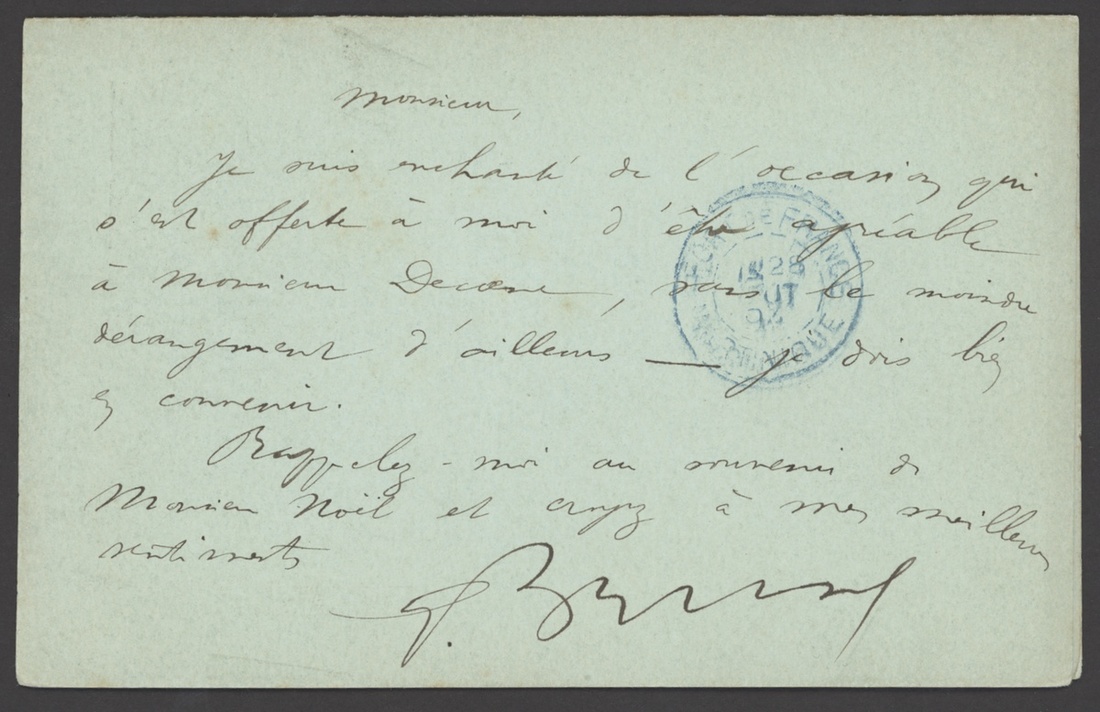 Monsieur,
Je suis enchanté de l'occasion qui
s'est offerte à moi d'être agréable
à Monsieur Decoene, sans le moindre
dérangement d'ailleurs — je dois bien
en convenir.
Rappelez-moi au souvenir de
Monsieur Noël et croyez à mes meilleurs
sentiments
FORT DE FRANCE
28
MARTINIQUE